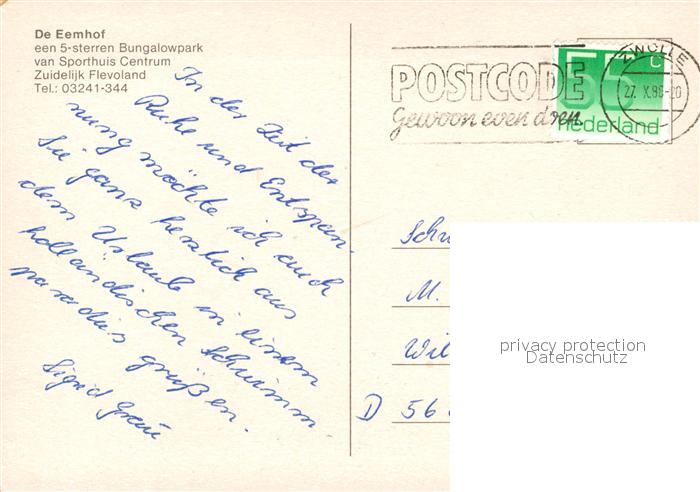 De Eemhof
een 5-sterren Bungalowpark
van Sporthuis Centrum
Zuidelijk Flevoland
Tel.: 03241-344
In der Zeit der
Ruhe und Entspan-
nung möchte ich auch
Sie ganz herzlich aus
dem Urlaub in einem
holländischen Schwimm
paradies grüßen.
Sigrid
POSTCODE
Gewoon even doen.
55 c
nederland
ZWOLLE
27. X.86-20
M.
D 56
privacy protection
Datenschutz